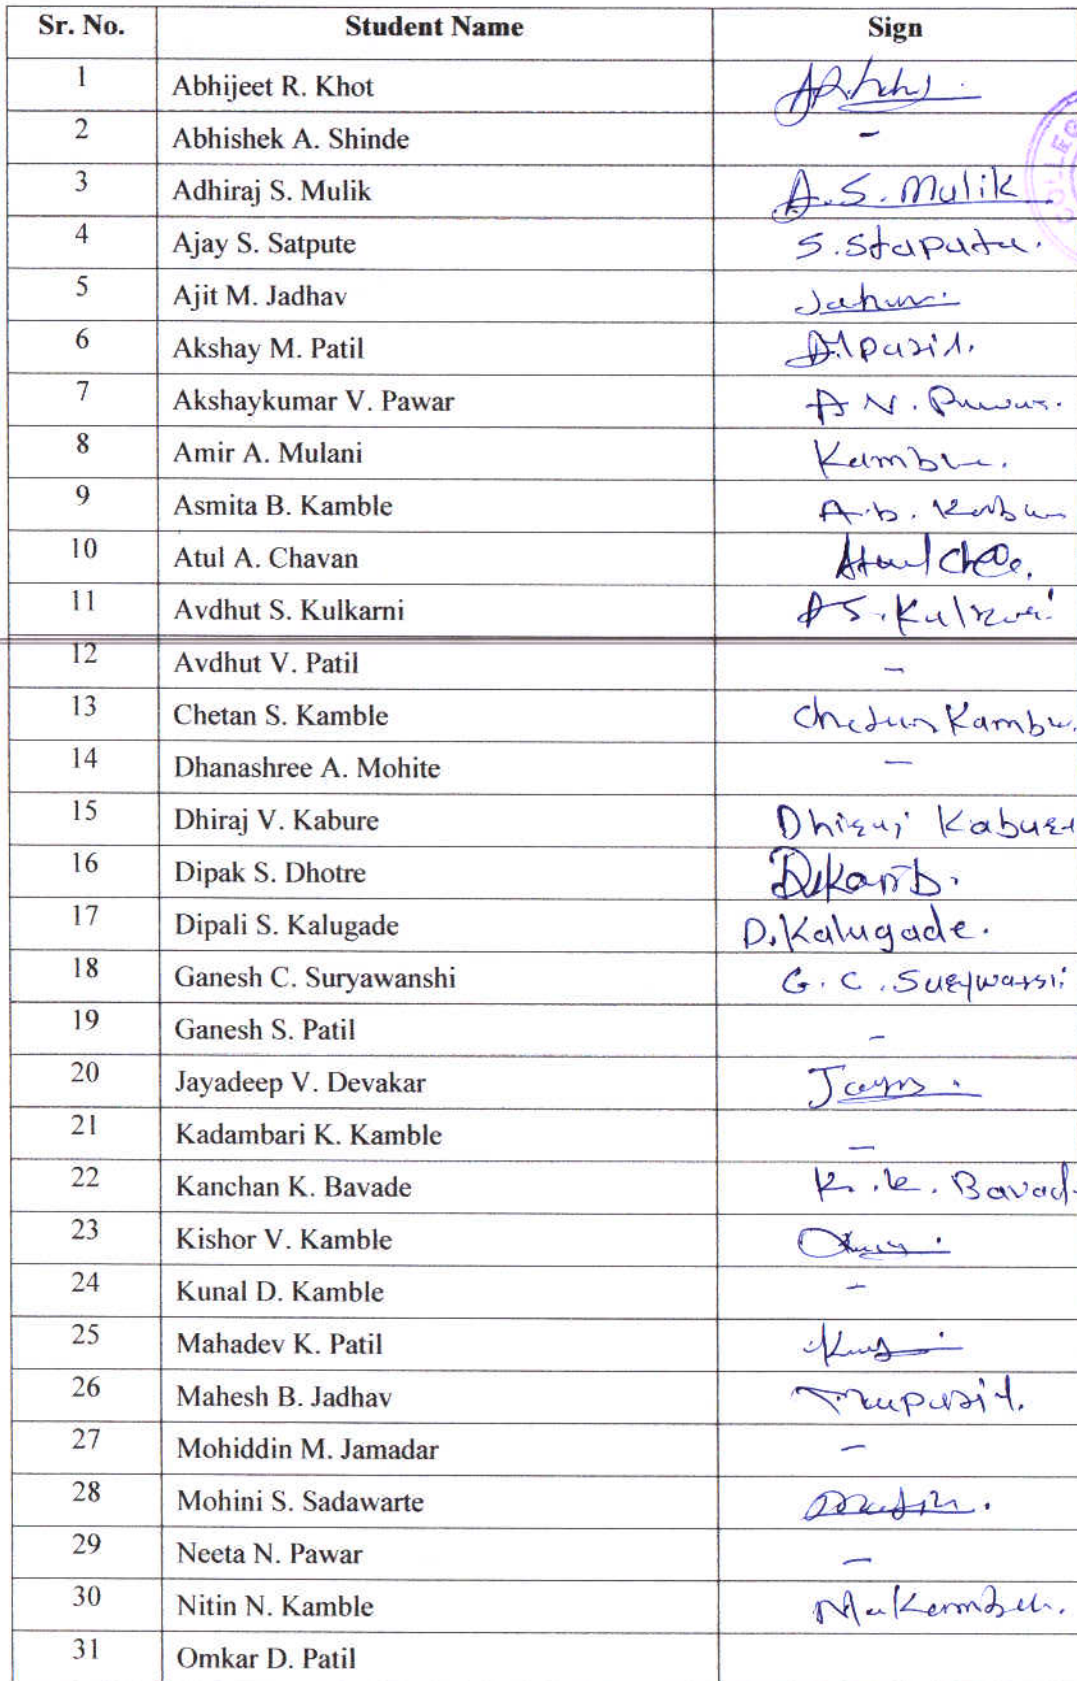 Sr. No. Student Name Sign
1 Abhijeet R. Khot
2 Abhishek A. Shinde -
3 Adhiraj S. Mulik A.S. Mulik
4 Ajay S. Satpute S. Staputu.
5 Ajit M. Jadhav
6 Akshay M. Patil
7 Akshaykumar V. Pawar
8 Amir A. Mulani
9 Asmita B. Kamble
10 Atul A. Chavan
11 Avdhut S. Kulkarni
12 Avdhut V. Patil -
13 Chetan S. Kamble
14 Dhanashree A. Mohite -
15 Dhiraj V. Kabure
16 Dipak S. Dhotre
17 Dipali S. Kalugade D. Kalugade.
18 Ganesh C. Suryawanshi
19 Ganesh S. Patil -
20 Jayadeep V. Devakar
21 Kadambari K. Kamble -
22 Kanchan K. Bavade K. K. Bavad.
23 Kishor V. Kamble
24 Kunal D. Kamble -
25 Mahadev K. Patil
26 Mahesh B. Jadhav
27 Mohiddin M. Jamadar -
28 Mohini S. Sadawarte
29 Neeta N. Pawar -
30 Nitin N. Kamble
31 Omkar D. Patil